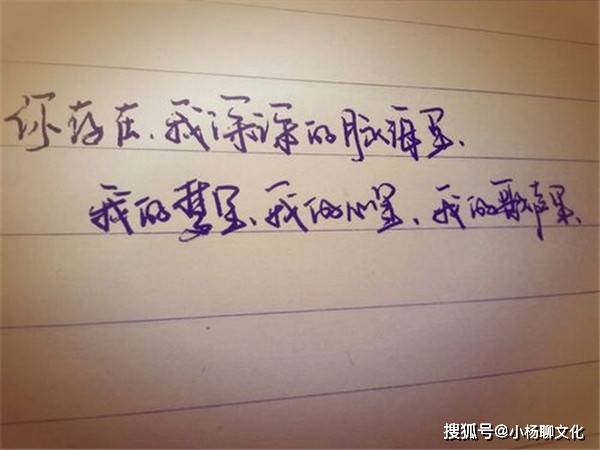 你存在、我深深的脑海里、
我的梦里、我的心里、我的歌声里、
搜狐号@小杨聊文化